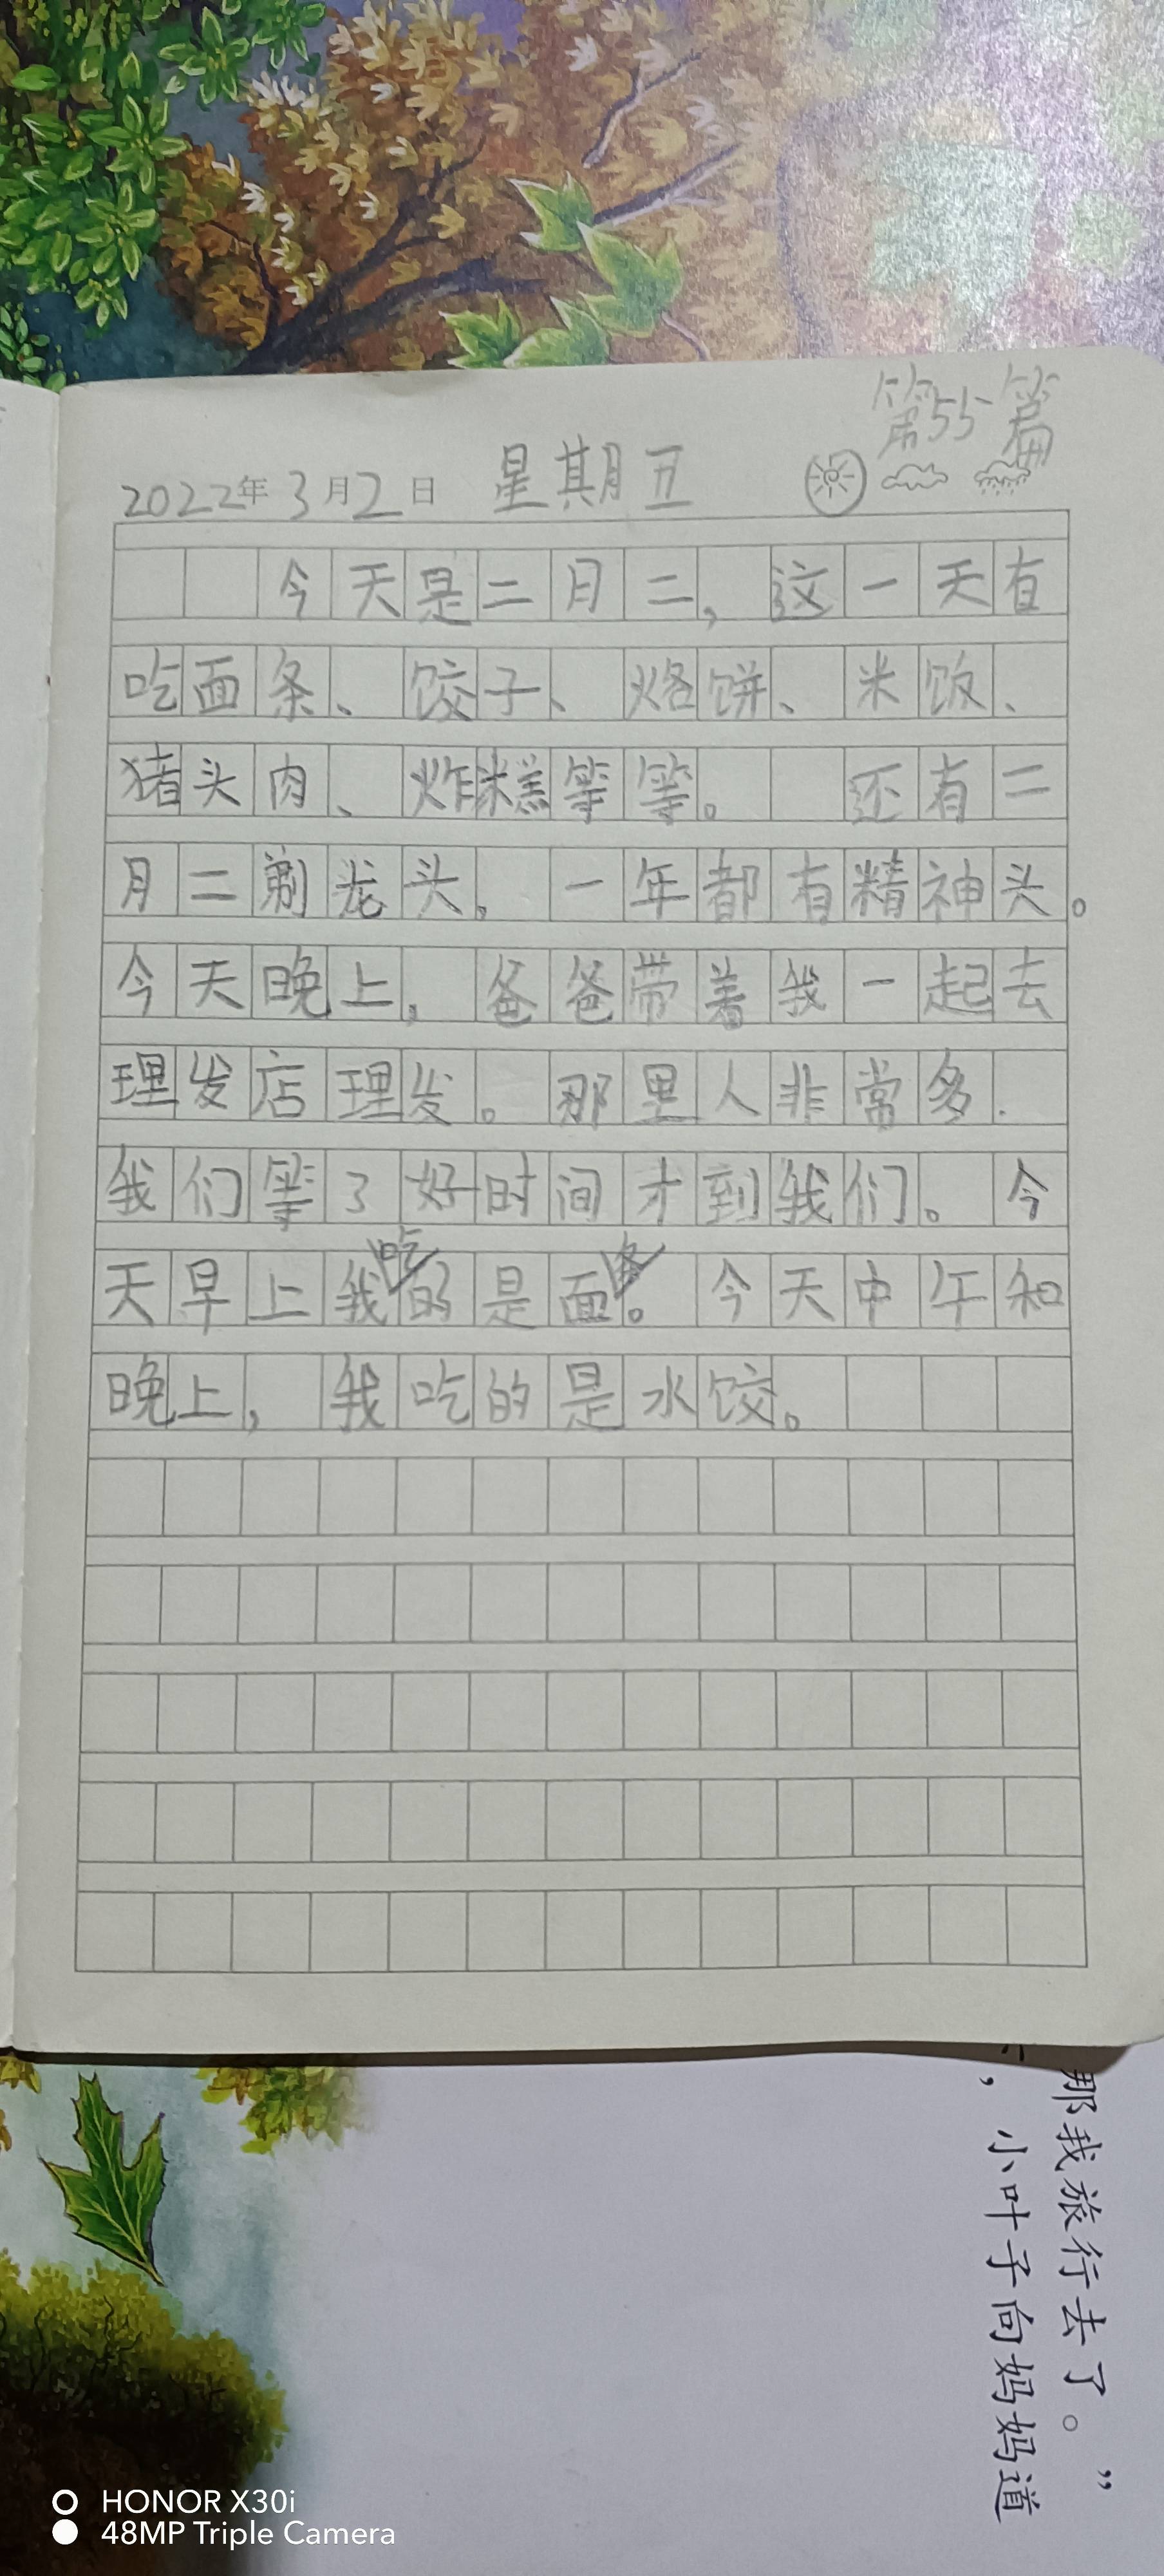 第55篇
2022年3月2日 星期五
今天是二月二，这一天有
吃面条、饺子、烙饼、米饭、
猪头肉、炸糕等等。还有二
月二剃龙头，一年都有精神头。
今天晚上，爸爸带着我一起去
理发店理发。那里人非常多.
我们等了好时间才到我们。今
天早上我吃的是面条。今天中午和
晚上，我吃的是水饺。
那我旅行去了。”
，小叶子向妈妈道
HONOR X30i
48MP Triple Camera